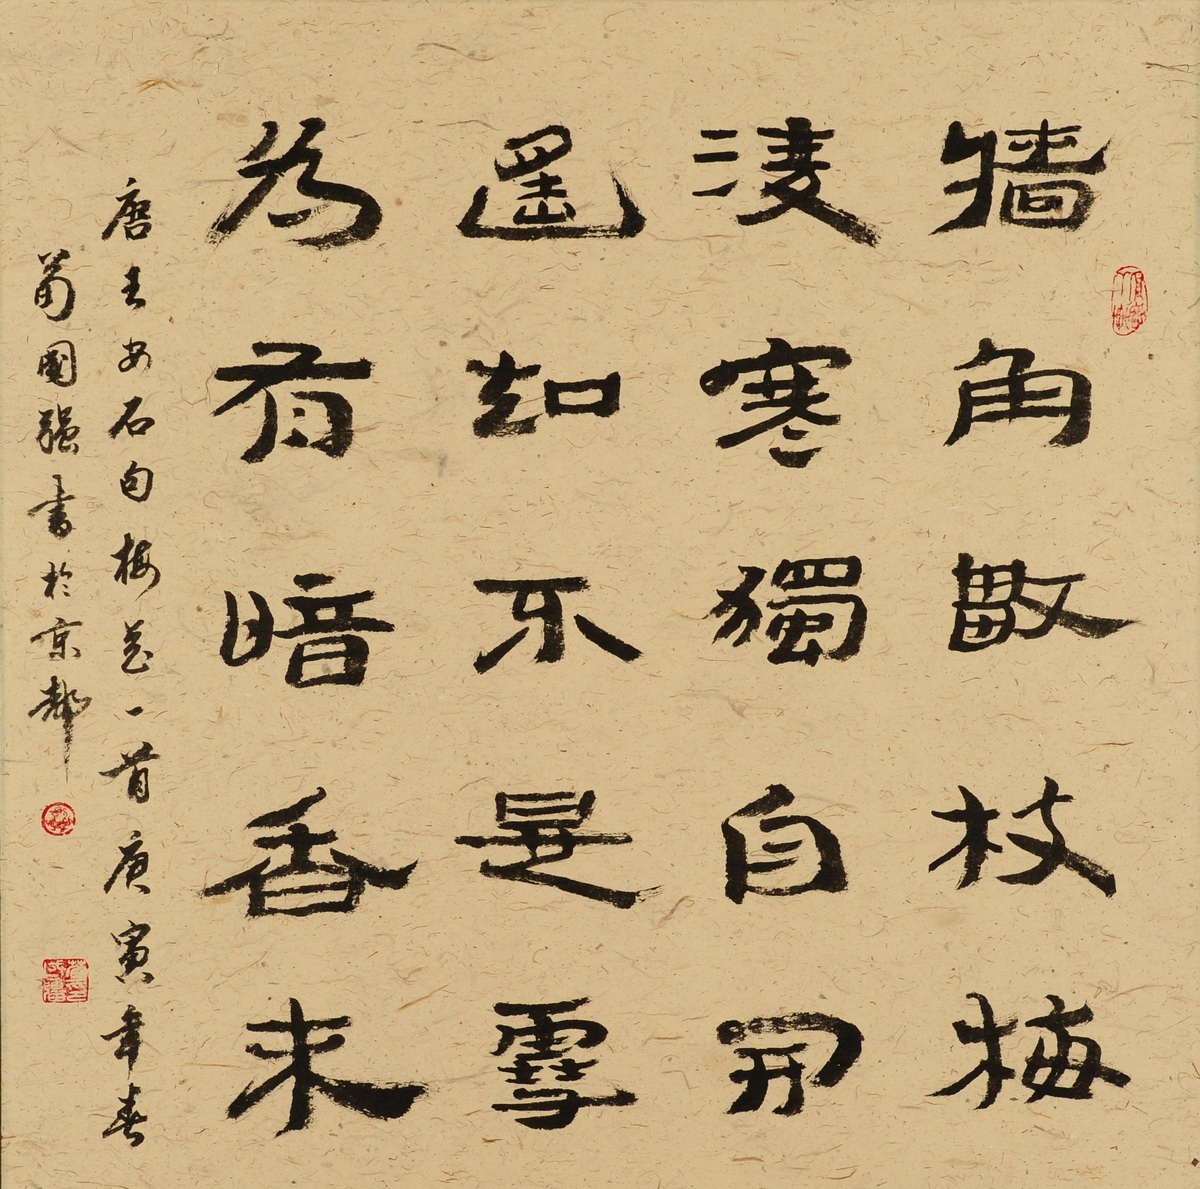 牆角數枝梅
凌寒獨自開
遙知不是雪
為有暗香來
唐王安石句梅花一首庚寅年春
荀國強書於京都